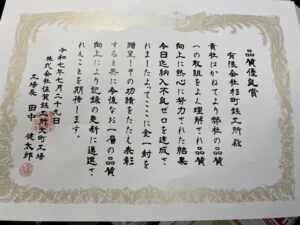 品質優良賞
有限会社杉町鉄工所殿
貴社はかねてより弊社の品質
への取組をよく理解され品質
向上に熱心に努力された結果
今日迄納入不良ゼロを達成さ
れましたよってここに金一封を
贈呈しその功績をたたえ表彰
すると共に今後なお一層の品質
向上により記録の更新に邁進さ
れんことを期待します。
令和七年七月二十九日
株式会社佐賀鉄工所大町工場
工場長 田中健太郎